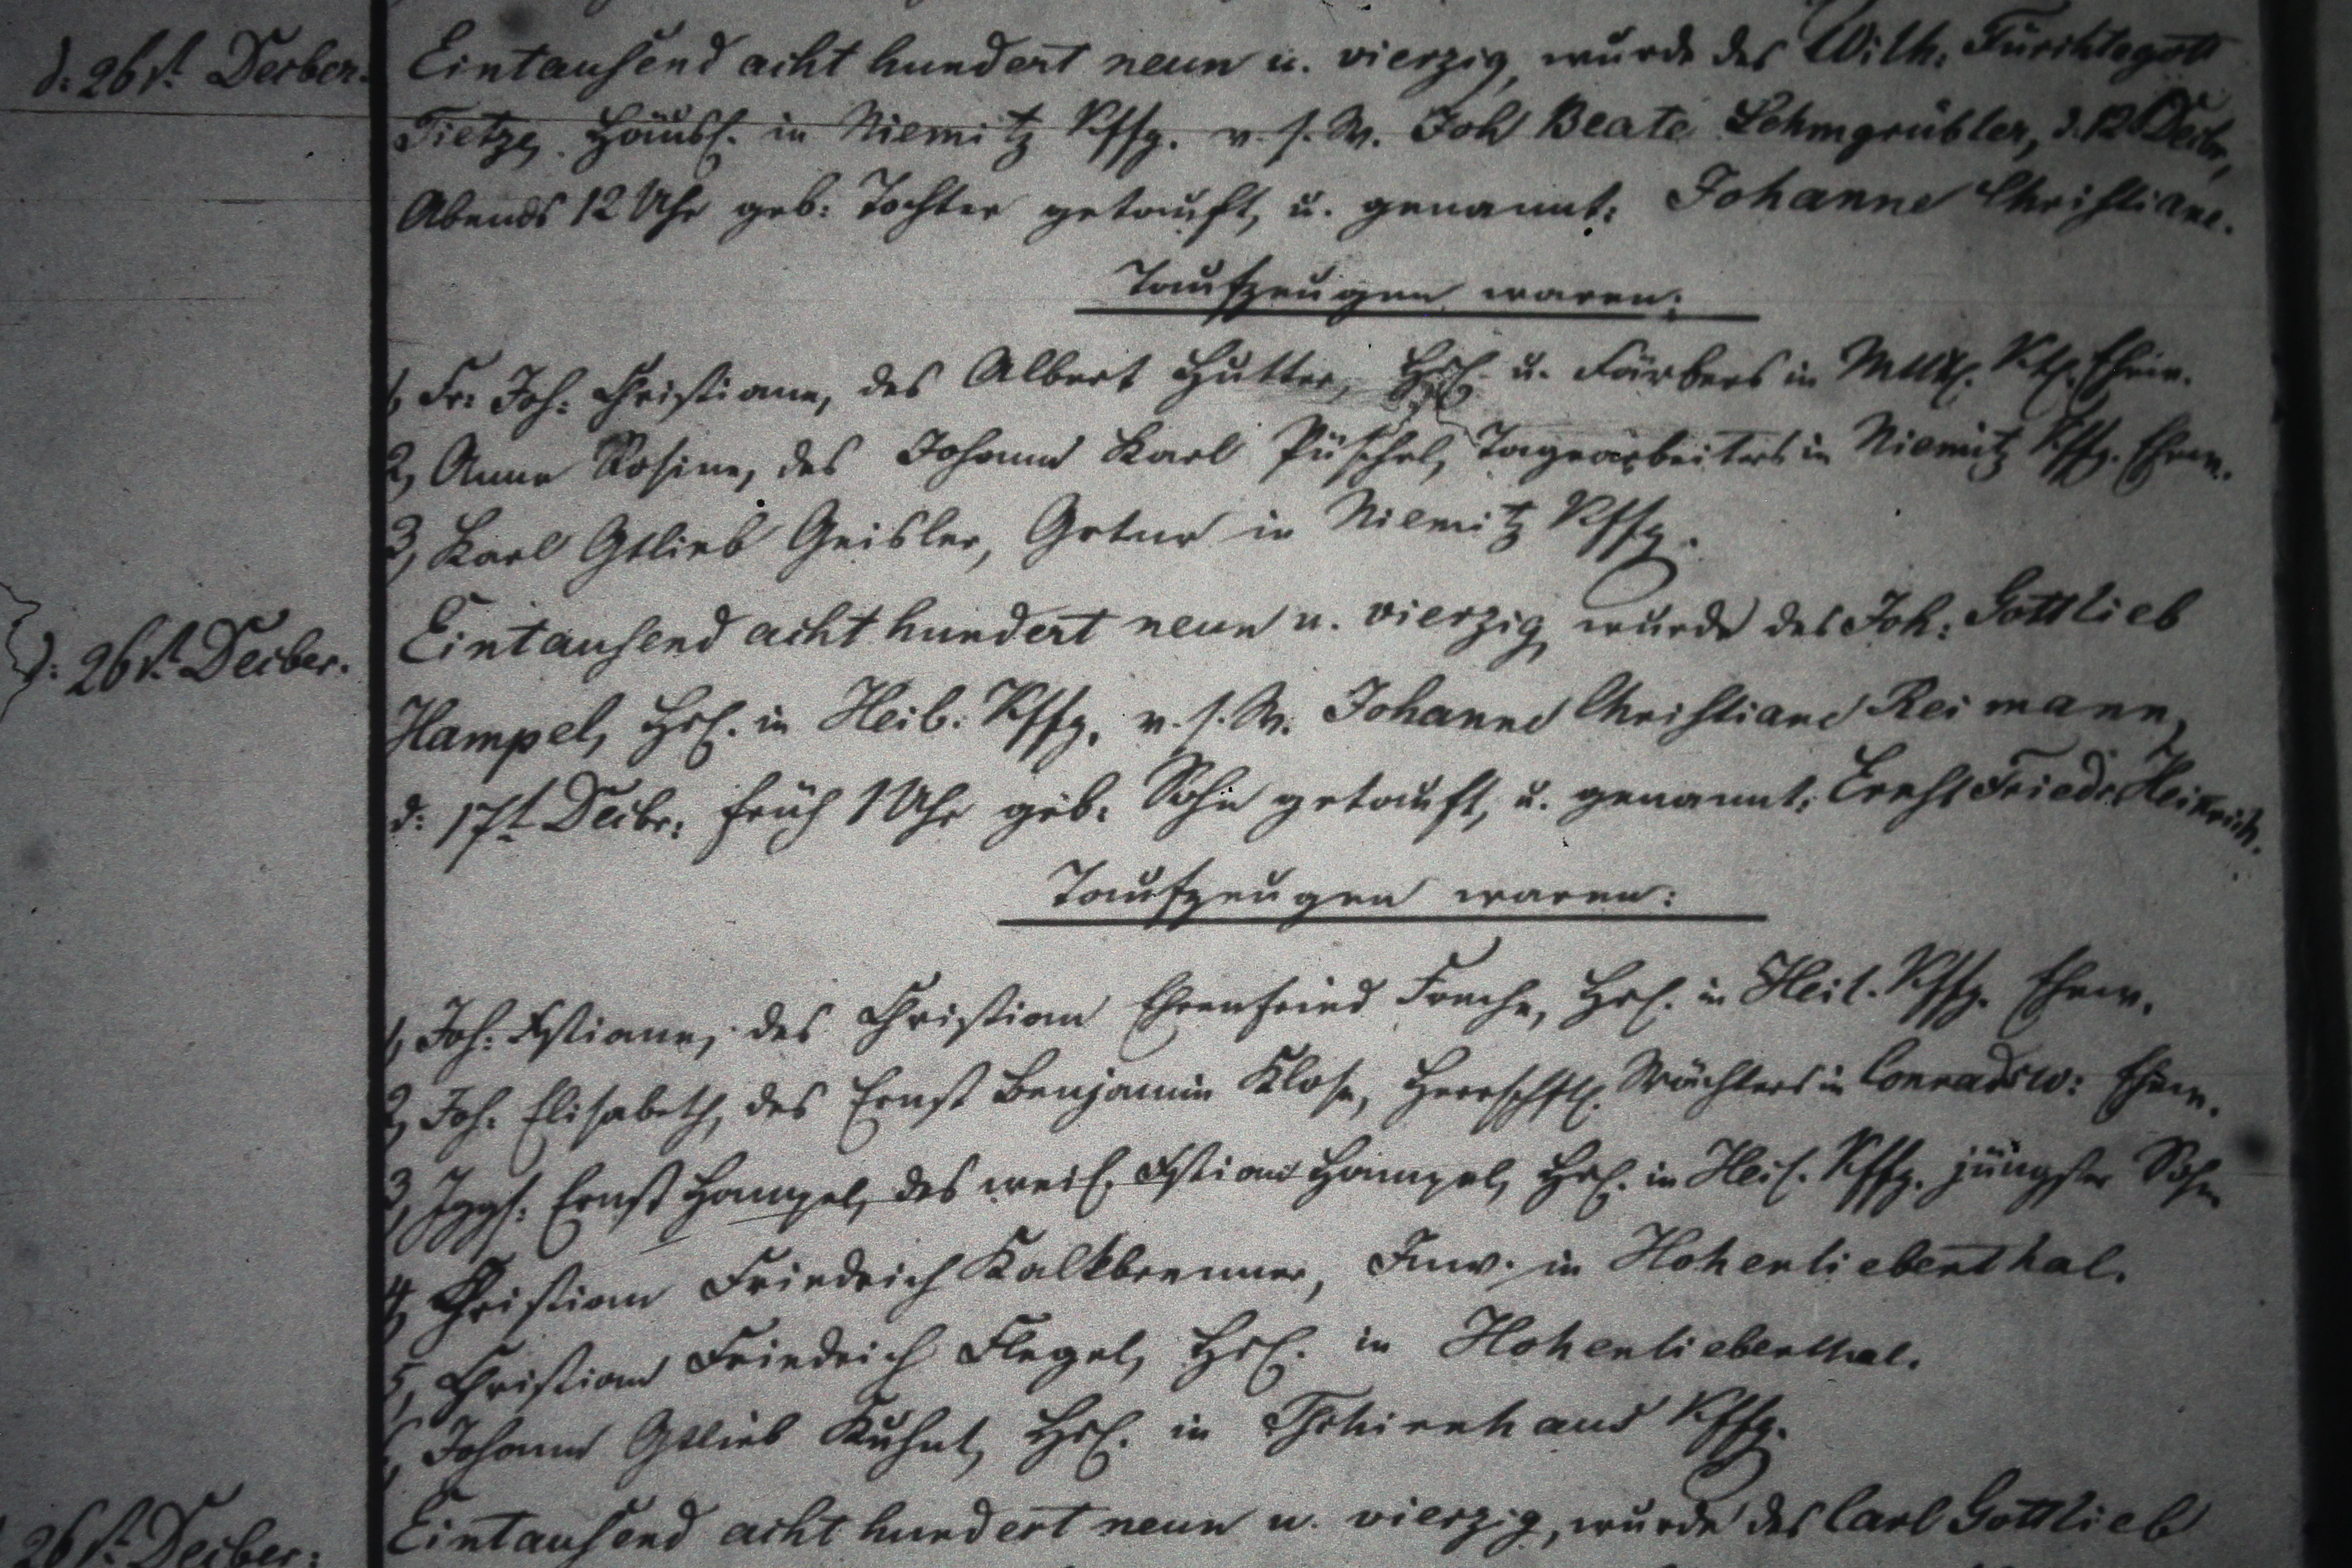 d. 26st. Decber.
Eintausend acht hundert neun u. vierzig, wurde des Wilh: Fürchtegott
Tietze, Häusl. in Niemitz Kffg. v. s. W. Joh Beate Lehmgrübler, d. 12t Decbr,
Abends 12 Uhr geb: Tochter getauft, u. genannt: Johanne Christiane.
Taufzeugen waren:
1, Fr: Joh: Christiane, des Albert Hutter, Hsl. u. Färbers in Ktf. Ehew.
2, Anne Rosine, des Johann Karl Püschel, Tagearbeiters in Niemitz Kffg. Ehew.
3, Karl Gtlieb Geisler, Grtnr in Niemitz Kffg.
d: 26st. Decber.
Eintausend acht hundert neun u. vierzig, wurde des Joh: Gottlieb
Hampel, Hsl. in Heil. Kffg, v. s. W. Johanne Christiane Reimann,
d: 17t Decbr: früh 1 Uhr geb: Sohn getauft, u. genannt: Ernst Friedr. Heinrich.
Taufzeugen waren:
1, Joh: Xstiane, des Christian Ehrenfried Frache, Hsl. in Heil. Kffg. Ehew.
2, Joh. Elisabeth, des Ernst Benjamin Klose, Herrschftl. Wächters in Conradsw: Ehew.
3, Jggs: Ernst Hampel, des weil. Xstian Hampel, Hsl. in Heil. Kffg. jüngster Sohn
4, Christian Friedrich Kalkbrenner, Inw. in Hohenliebenthal.
5, Christian Friedrich Flegel, Hsl. in Hohenliebenthal.
6, Johann Gtlieb Kuhnt, Hsl. in Tschirnhaus Kffg.
26st. Decber:
Eintausend acht hundert neun u. vierzig, wurde des Carl Gottlieb